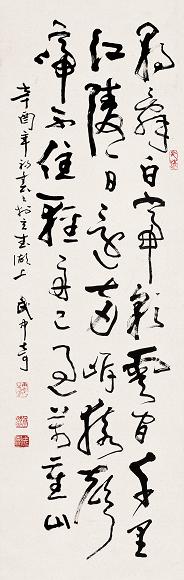 朝辭白帝彩雲間千里
江陵一日還兩岸猿聲
啼不住輕舟已過萬重山
辛酉年初春於玄武湖上 武中奇